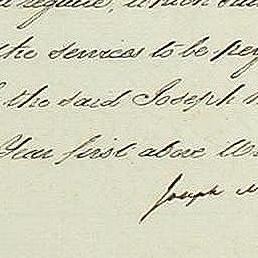 require, which
the services to be per
the said Joseph
Year first above
Joseph